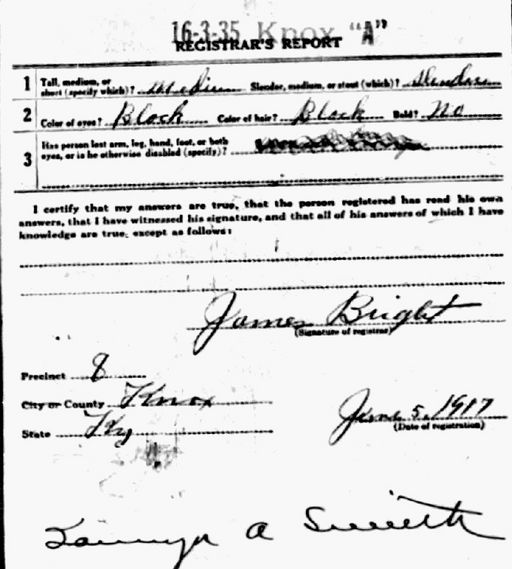 16-3-35 Knox "A"
REGISTRAR'S REPORT
1 Tall, medium, or short (specify which)? Medium Slender, medium, or stout (which)? Slender
2 Color of eyes? Black Color of hair? Black Bald? No
3 Has person lost arm, leg, hand, foot, or both
eyes, or is he otherwise disabled (specify)?
I certify that my answers are true, that the person registered has read his own
answers, that I have witnessed his signature, and that all of his answers of which I have
knowledge are true, except as follows:
James Bright
(Signature of registrar)
Precinct 8
City or County Knox
State Ky
June 5, 1917
(Date of registration)
A Smith